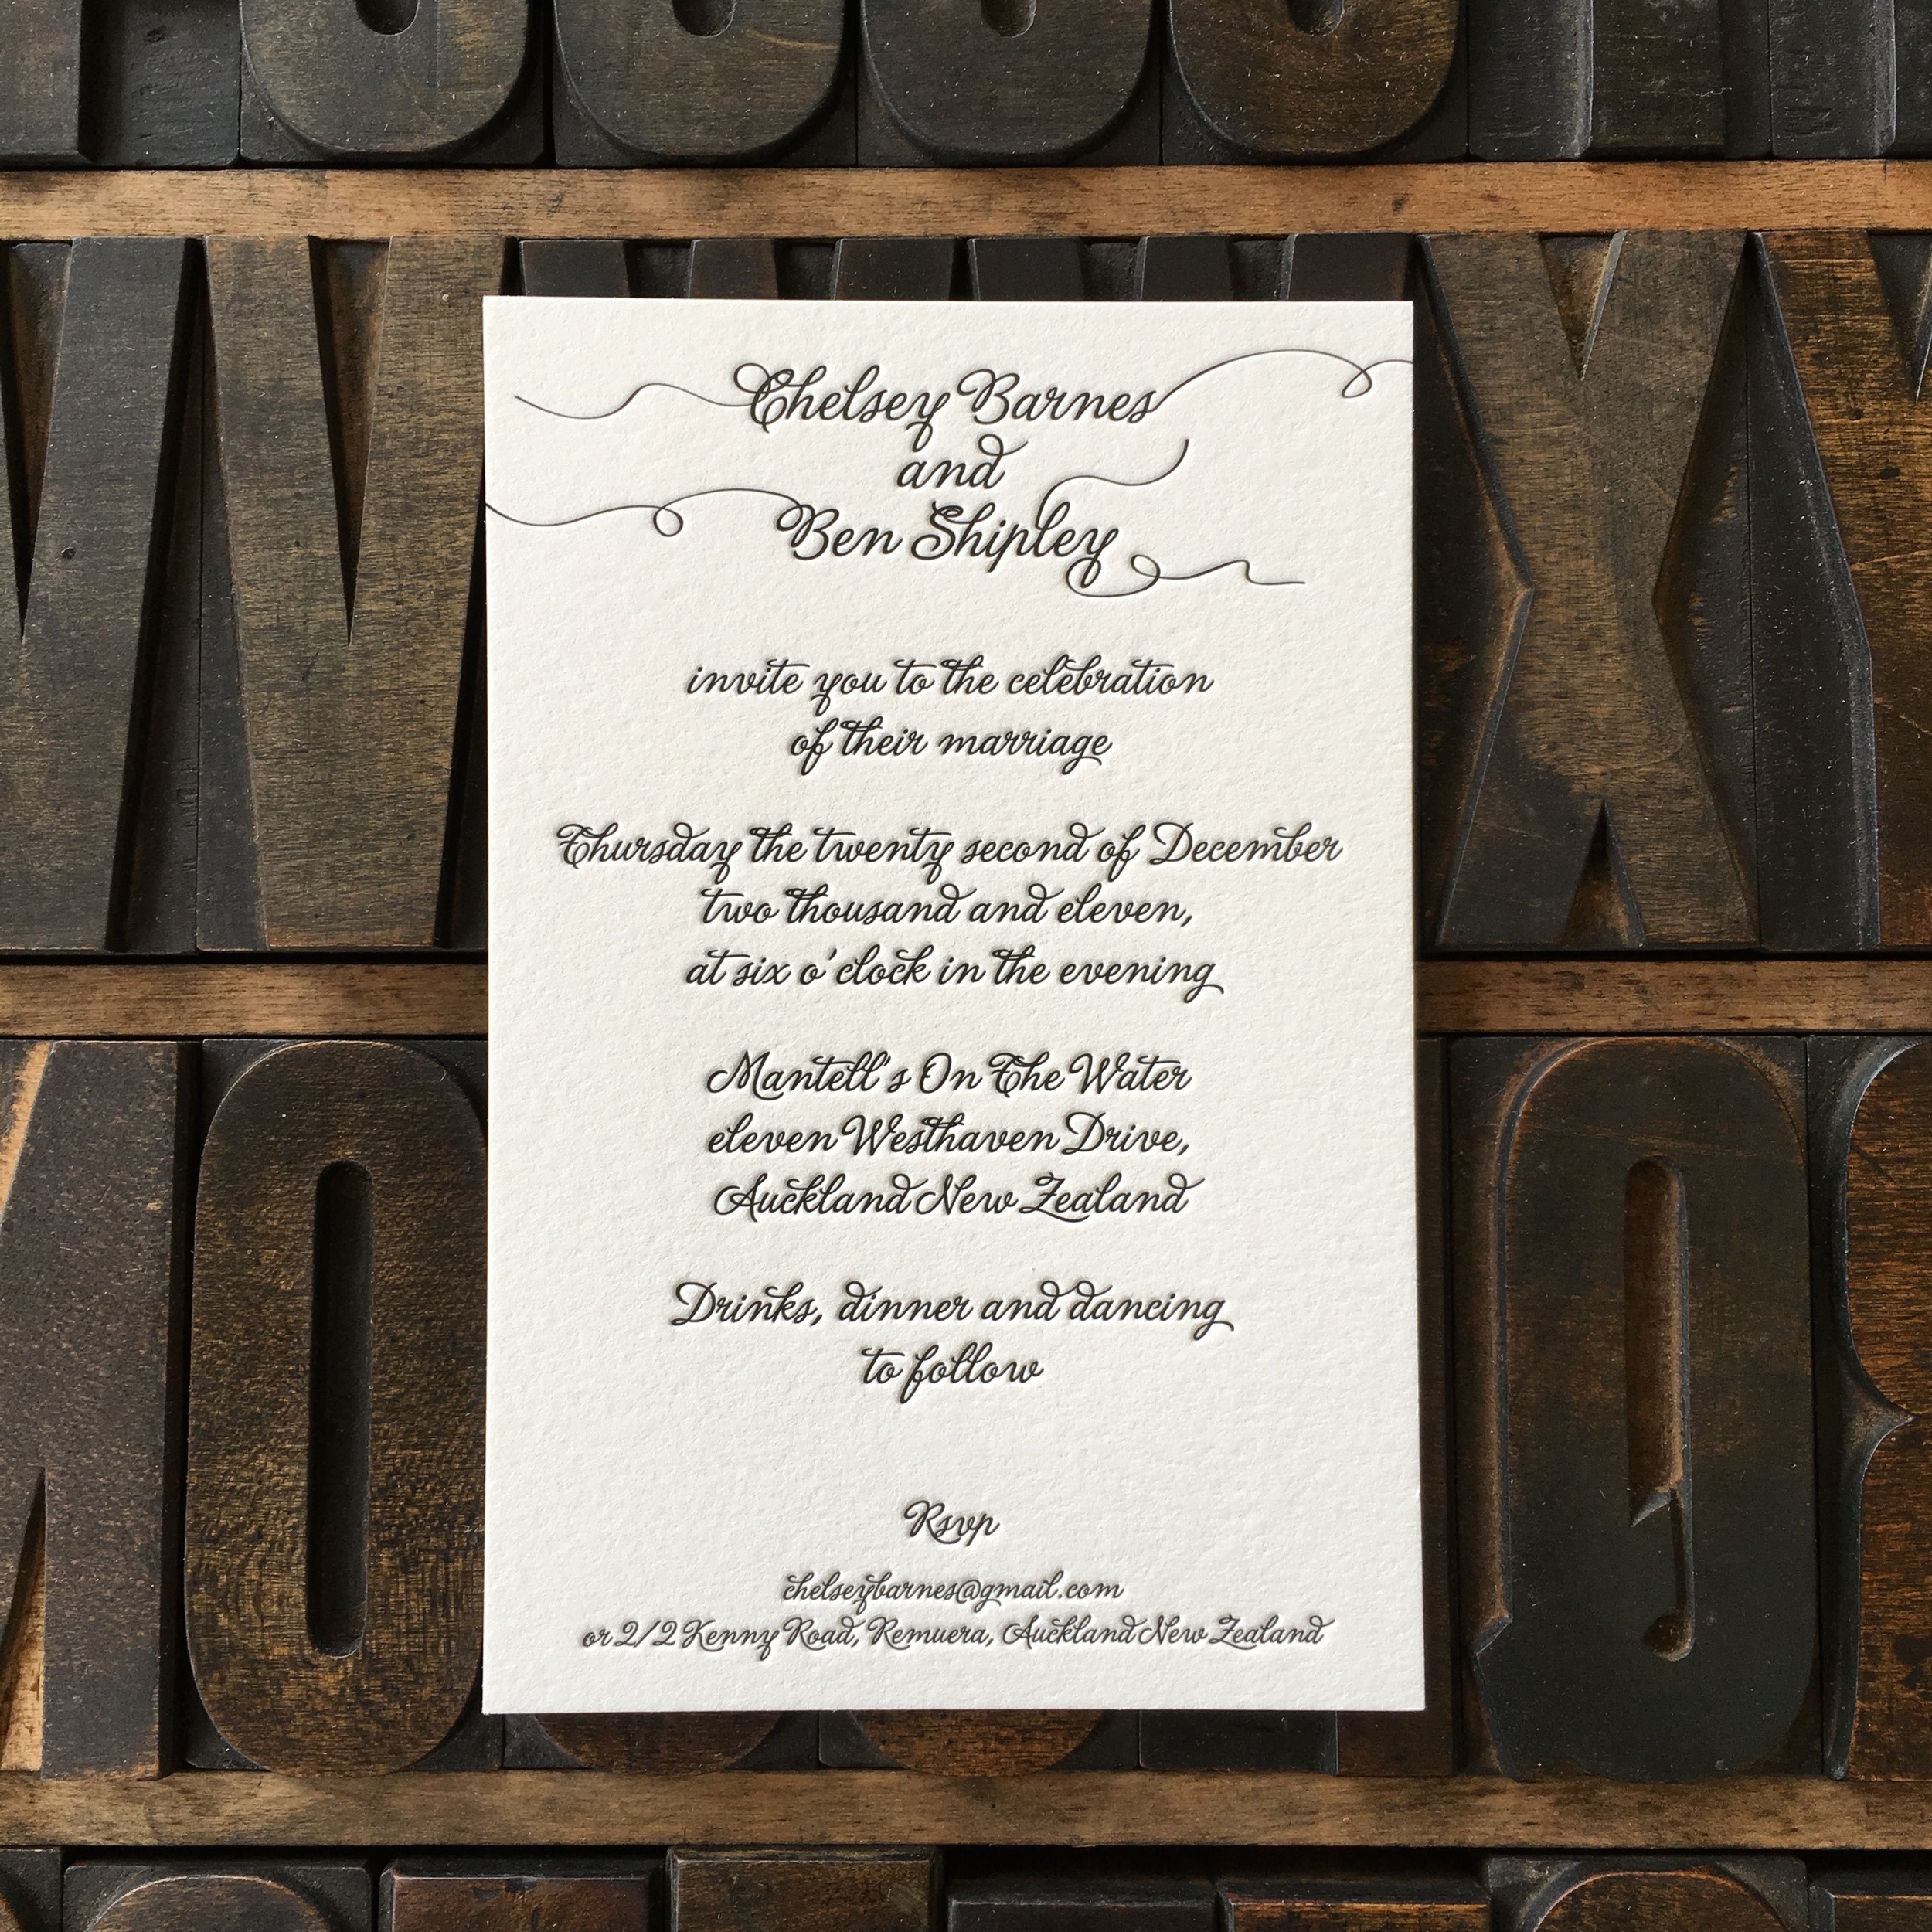 Chelsey Barnes
and
Ben Shipley
invite you to the celebration
of their marriage
Thursday the twenty second of December
two thousand and eleven,
at six o'clock in the evening
Mantell's On The Water
eleven Westhaven Drive,
Auckland New Zealand
Drinks, dinner and dancing
to follow
Rsvp
chelseybarnes@gmail.com
or 2/2 Kenny Road, Remuera, Auckland New Zealand